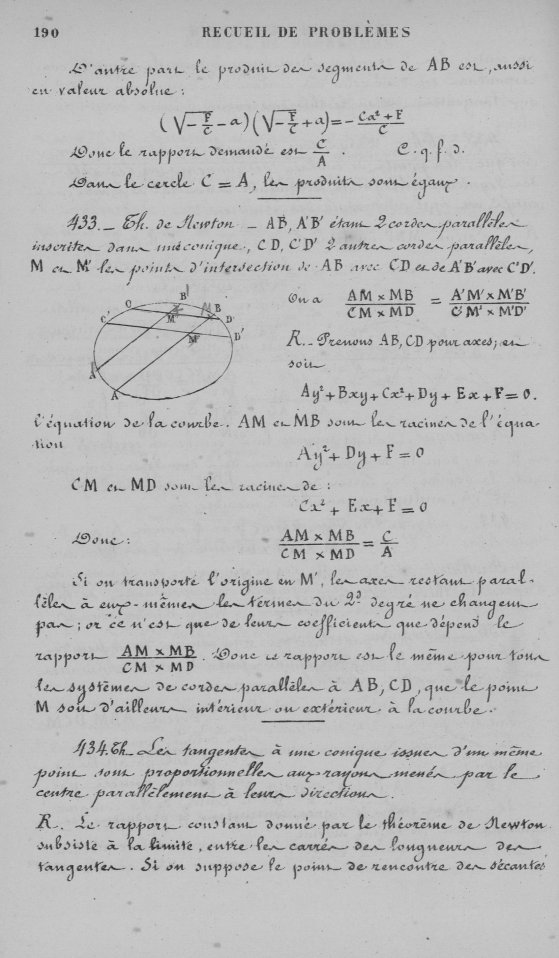 190 RECUEIL DE PROBLÈMES
D'autre part le produit des segments de AB est, aussi
en valeur absolue :
(√-F/C - a)(√-F/C + a) = - Ca² + F / C
Donc le rapport demandé est C/A . C. q. f. d.
Dans le cercle C = A, les produits sont égaux.
433. _ Th. de Newton _ AB, A'B' étant 2 cordes parallèles
inscrites dans une conique, CD, C'D' 2 autres cordes parallèles,
M et M' les points d'intersection de AB avec CD et de A'B' avec C'D'.
On a AM × MB / CM × MD = A'M' × M'B' / C'M' × M'D'
R._ Prenons AB, CD pour axes; et
soit
Ay² + Bxy + Cx² + Dy + Ex + F = 0.
l'équation de la courbe. AM et MB sont les racines de l'équa-
tion
Ay² + Dy + F = 0
CM et MD sont les racines de :
Cx² + Ex + F = 0
Donc : AM × MB / CM × MD = C/A
Si on transporte l'origine en M', les axes restant paral-
lèles à eux-mêmes les termes du 2d degré ne changent
pas ; or ce n'est que de leurs coefficients que dépend le
rapport AM × MB / CM × MD . Donc ce rapport est le même pour tous
les systèmes de cordes parallèles à AB, CD, que le point
M soit d'ailleurs intérieur ou extérieur à la courbe.
434. Th _ Les tangentes à une conique issues d'un même
point sont proportionnelles aux rayons menés par le
centre parallèlement à leurs directions.
R. Le rapport constant donné par le théorème de Newton
subsiste à la limite, entre les carrés des longueurs des
tangentes. Si on suppose le point de rencontre des sécantes
C' O B' B
M' D
M' D'
A'
A